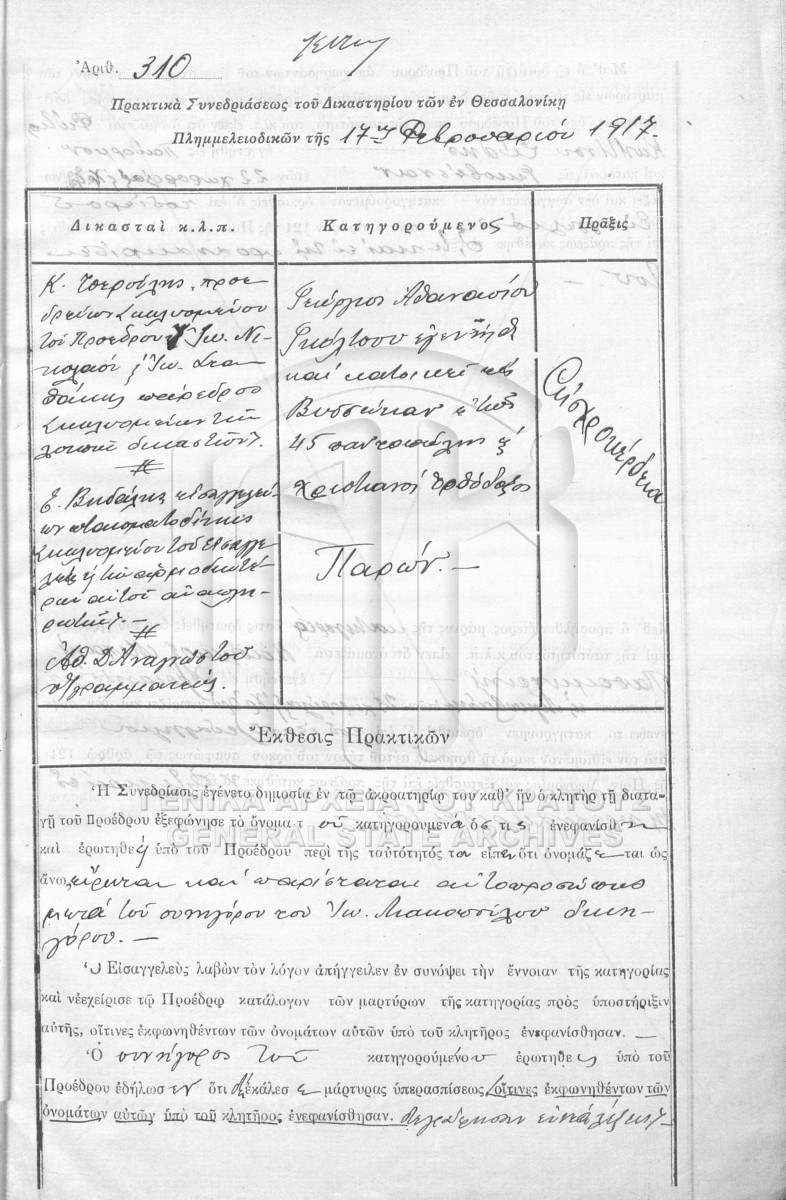 Ἀριθ. 310
Πρακτικὰ Συνεδριάσεως τοῦ Δικαστηρίου τῶν ἐν Θεσσαλονίκῃ
Πλημμελειοδικῶν τῆς 17ης Φεβρουαρίου 1917.
Δικασταὶ κ.λ.π.
Κ. Τσερούλης, προε
δρεύων κωλυομένου
τοῦ Προέδρου Ἰω. Νι-
κολαου, Ἰω. Στα
θάκης πάρεδρος
κωλυομένων τῶν
λοιπῶν δικαστῶν.
Ε. Βιδάλης εἰσαγγελεύ
ων πταισματοδίκης
κωλυομένου τοῦ Εἰσαγγε
λέως
Ἀθ. Δ. Ἀναγνώστου
γραμματεύς.
Κατηγορούμενος
Γεώργιος Ἀθανασίου
Γκόλτσου ἐγεννήθη
καὶ κατοικεῖ εἰς
Βυσσώκαν ἐτῶν
45 παντοπώλης
χριστιανὸς ὀρθόδοξος
Παρών. —
Πρᾶξις
Αἰσχροκέρδεια
Ἔκθεσις Πρακτικῶν
Ἡ Συνεδρίασις ἐγένετο δημοσία ἐν τῷ ἀκροατηρίῳ του καθ' ἣν ὁ κλητὴρ τῇ διατα-
γῇ τοῦ Προέδρου ἐξεφώνησε τὸ ὄνομα τοῦ κατηγορουμένου ὅστις ἐνεφανίσθη
καὶ ἐρωτηθεὶς ὑπὸ τοῦ Προέδρου περὶ τῆς ταὐτότητός του εἶπεν ὅτι ὀνομάζεται ὡς
ἄνω εἴρηται καὶ παρίσταται αὐτοπροσώπως
μετὰ τοῦ συνηγόρου του Ἰω. Μακοπούλου δικη-
γόρου. —
Ὁ Εἰσαγγελεὺς λαβὼν τὸν λόγον ἀπήγγειλεν ἐν συνόψει τὴν ἔννοιαν τῆς κατηγορίας
καὶ ἐνεχείρισε τῷ Προέδρῳ κατάλογον τῶν μαρτύρων τῆς κατηγορίας πρὸς ὑποστήριξιν
αὐτῆς, οἵτινες ἐκφωνηθέντων τῶν ὀνομάτων αὐτῶν ὑπὸ τοῦ κλητῆρος ἐνεφανίσθησαν. —
Ὁ συνήγορος τοῦ κατηγορουμένου ἐρωτηθεὶς ὑπὸ τοῦ
Προέδρου ἐδήλωσεν ὅτι ἐκάλεσε μάρτυρας ὑπερασπίσεως οἵτινες ἐκφωνηθέντων τῶν
ὀνομάτων αὐτῶν ὑπὸ τοῦ κλητῆρος ἐνεφανίσθησαν.
ΓΕΝΙΚΑ ΑΡΧΕΙΑ ΤΟΥ ΚΡΑΤΟΥΣ
GENERAL STATE ARCHIVES